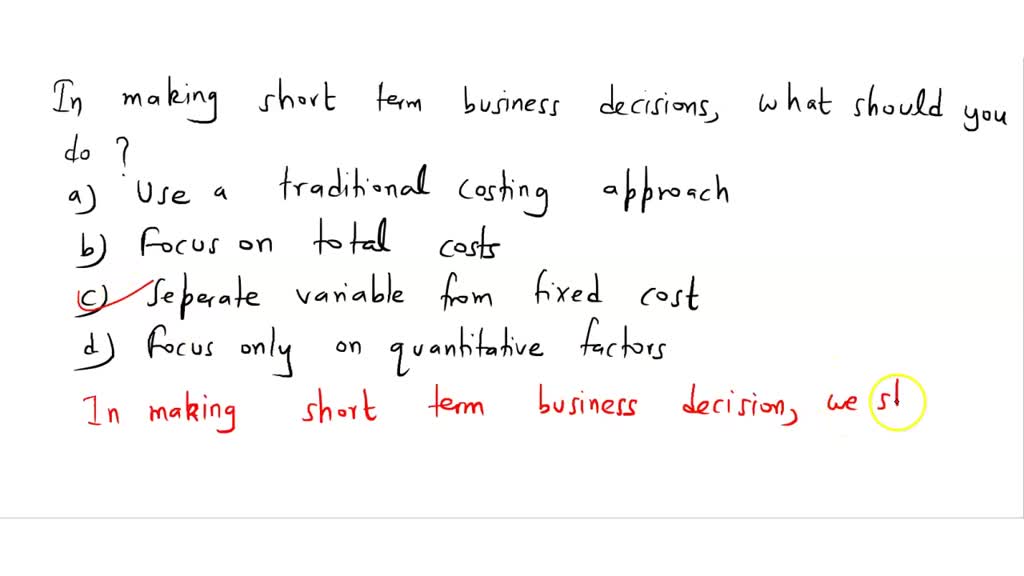 In making short term business decisions, what should you
do ?
a) Use a traditional costing approach
b) Focus on total costs
c) Seperate variable from fixed cost
d) Focus only on quantitative factors
In making short term business decision, we sh